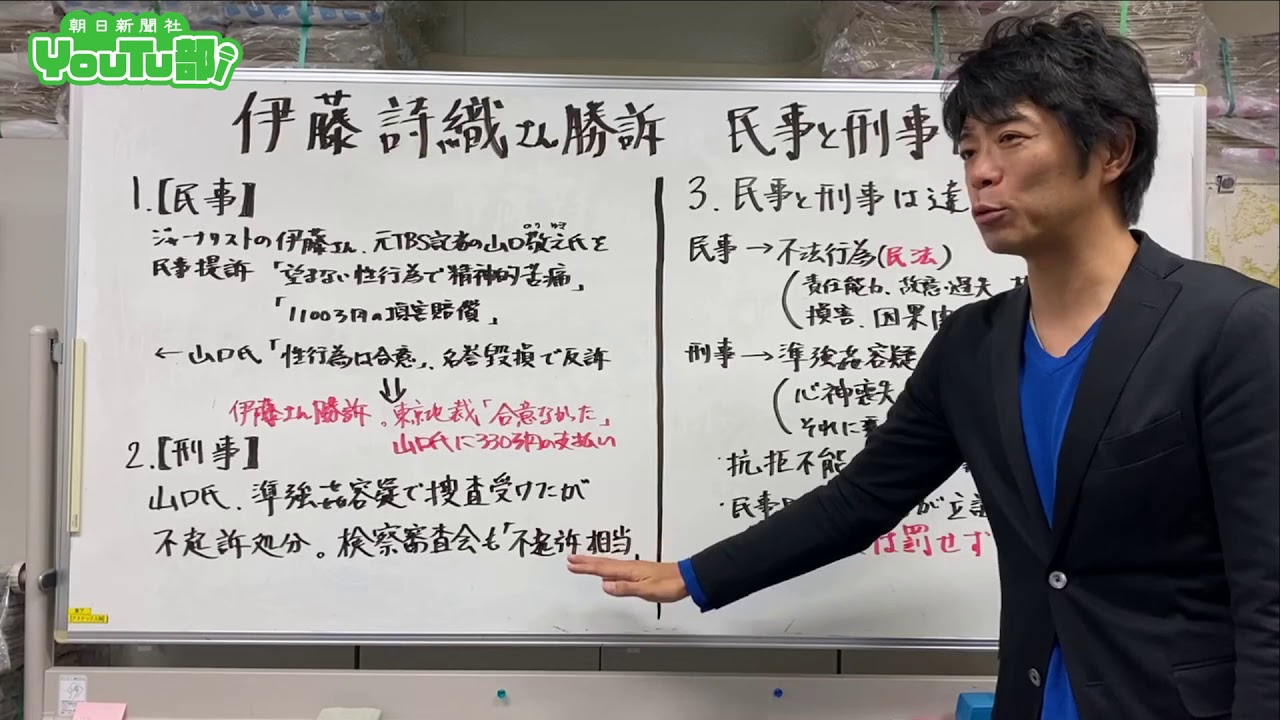 朝日新聞社
YouTu部
伊藤詩織さん勝訴 民事と刑事
1.【民事】
ジャーナリストの伊藤さん、元TBS記者の山口敬之氏を
のりゆき
民事提訴「望まない性行為で精神的苦痛」
「1100万円の損害賠償」
← 山口氏「性行為は合意」、名誉毀損で反訴
⇓
伊藤さん勝訴。東京地裁「合意なかった」
山口氏に330万円の支払い
2.【刑事】
山口氏、準強姦容疑で捜査受けたが
不起訴処分。検察審査会も「不起訴相当」
3.民事と刑事は違
民事→不法行為(民法)
(責任能力、故意・過失
損害、因果
刑事→準強姦容疑
(心神喪失
それに
・抗拒不能
・民事
が立証
は罰せず